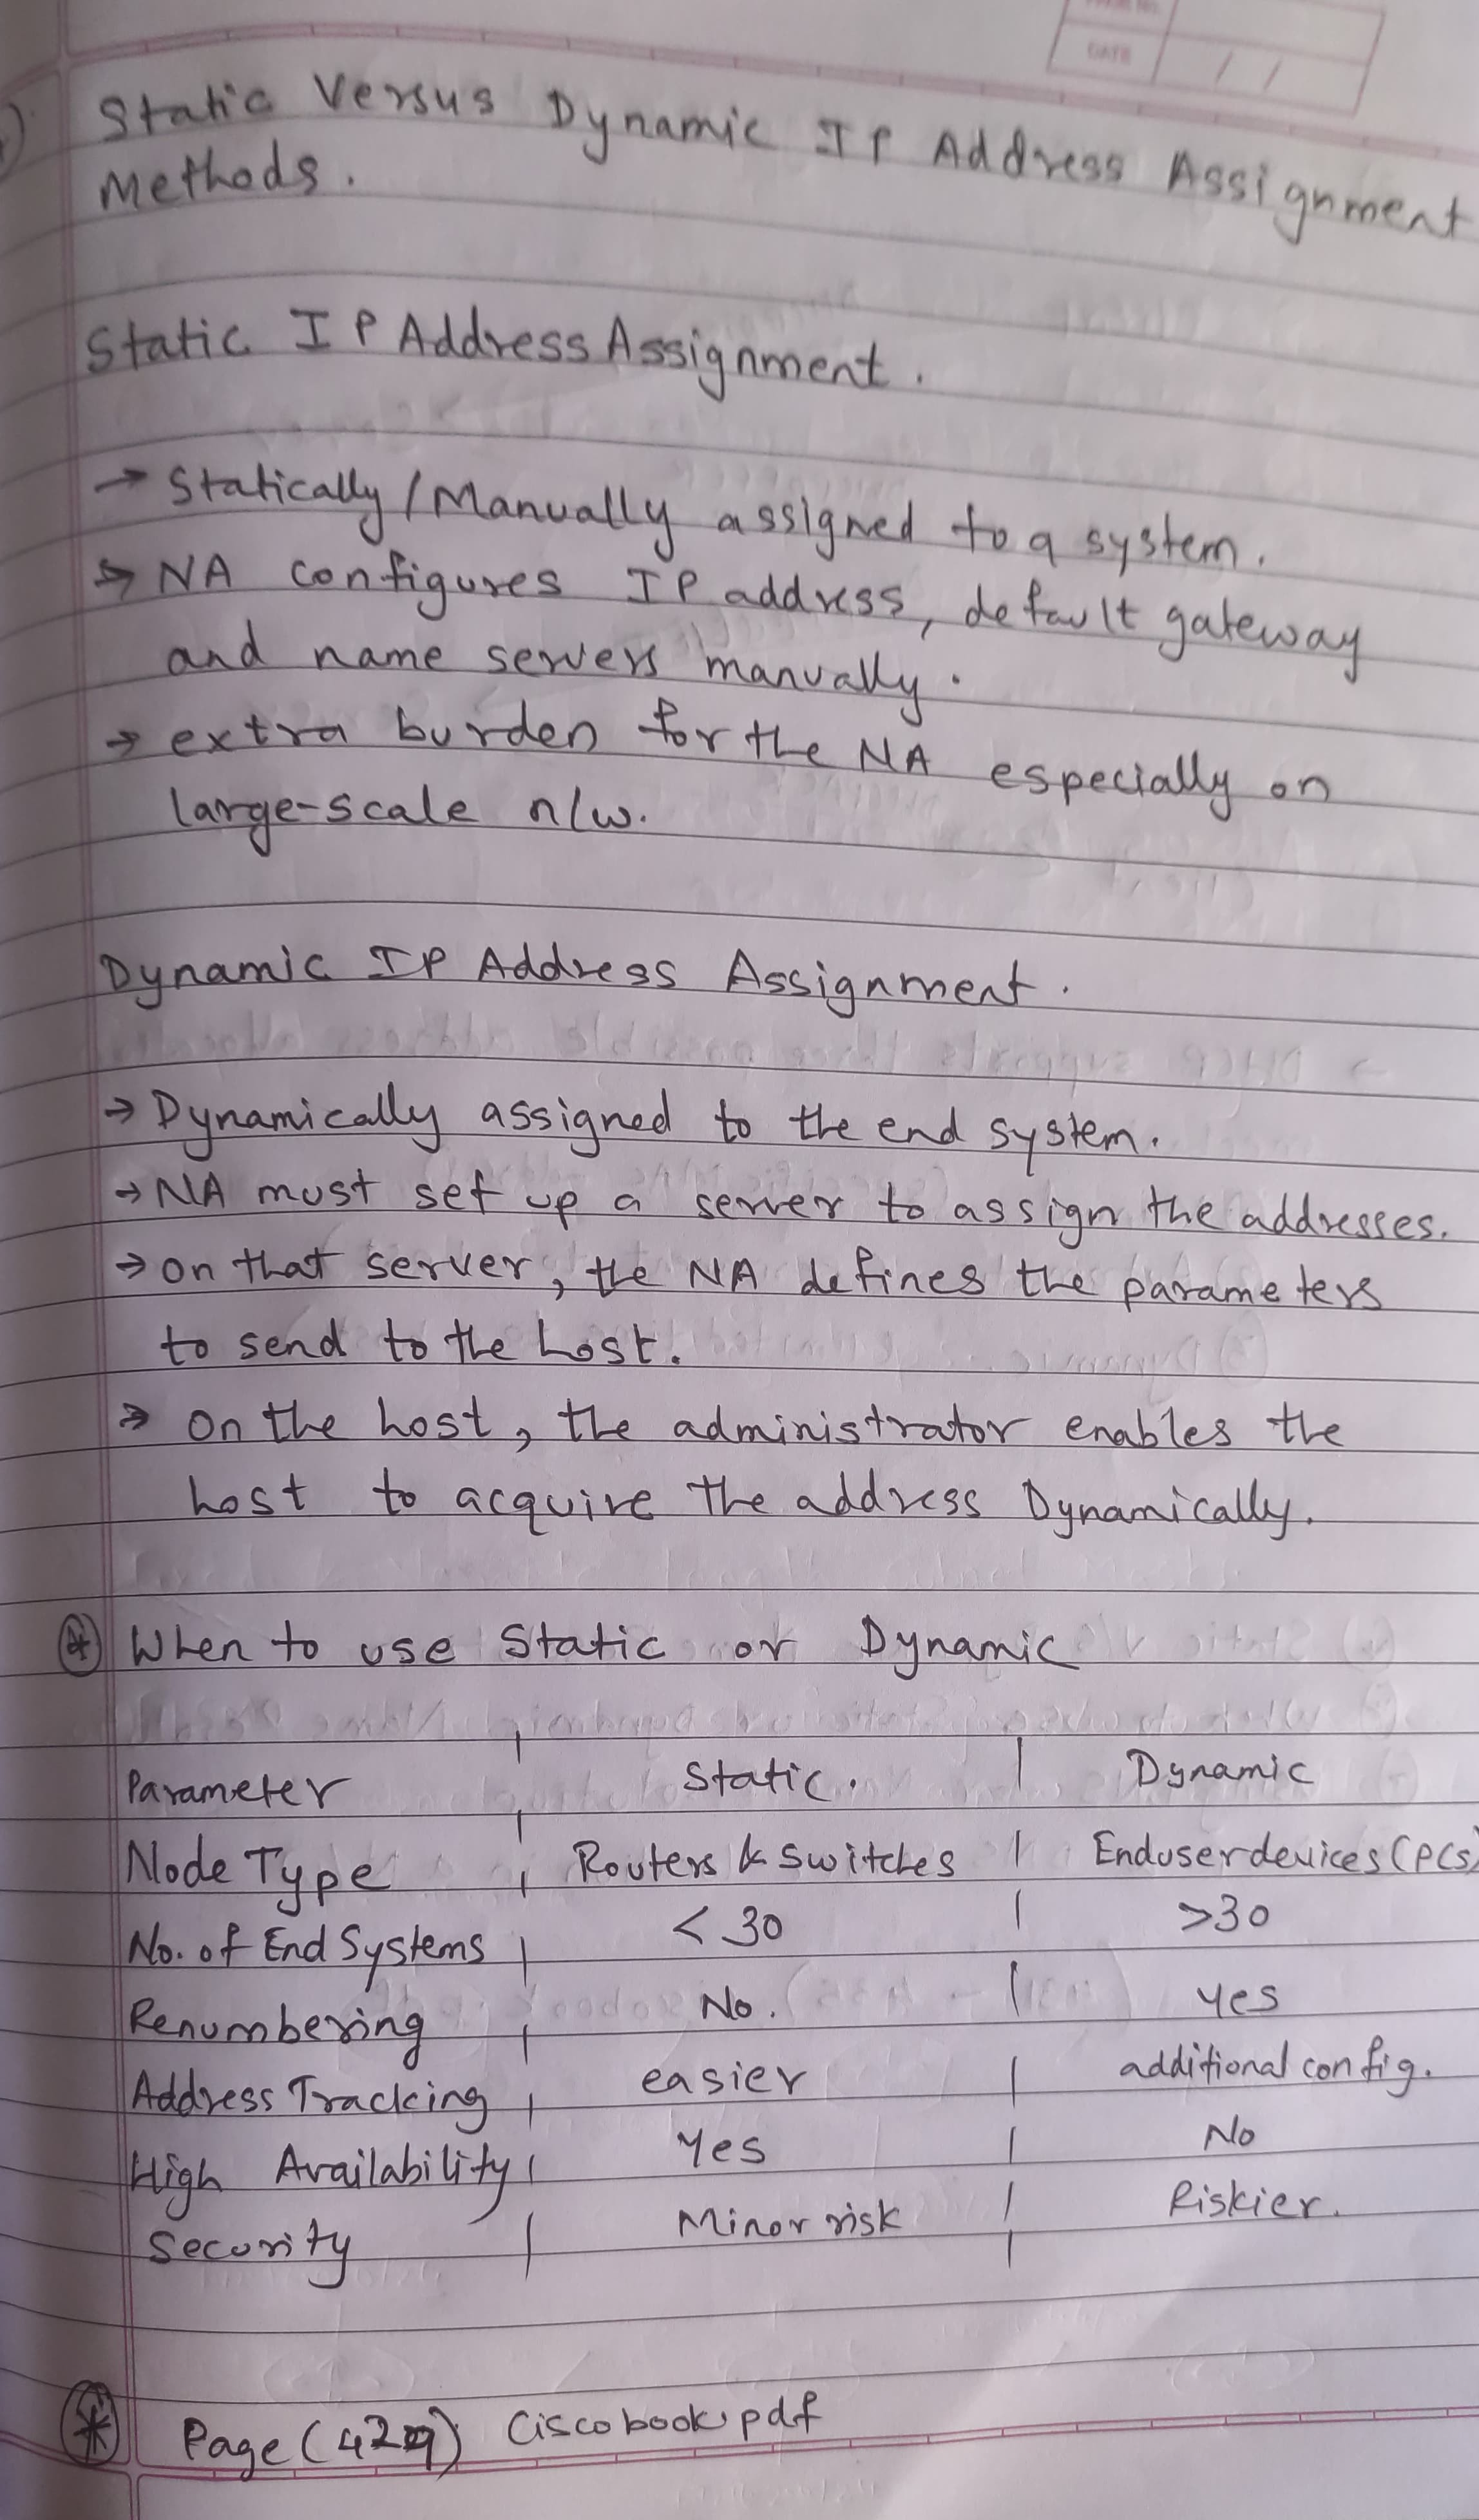 DATE / /
Static Versus Dynamic IP Address Assignment
Methods.
Static IP Address Assignment.
→ Statically/Manually assigned to a system.
→ NA configures IP address, default gateway
and name servers manually.
→ extra burden for the NA especially on
large-scale n/w.
Dynamic IP Address Assignment.
→ Dynamically assigned to the end system.
→ NA must set up a server to assign the addresses.
→ on that server, the NA defines the parameters
to send to the host.
→ On the host, the administrator enables the
host to acquire the address Dynamically.
When to use Static or Dynamic
Parameter | Static. | Dynamic
Node Type | Routers & Switches | Enduser devices (PCs)
No. of End Systems | < 30 | >30
Renumbering | No. | yes
Address Tracking | easier | additional config.
High Availability | Yes | No
Security | Minor risk | Riskier.
* Page (429) Cisco book.pdf